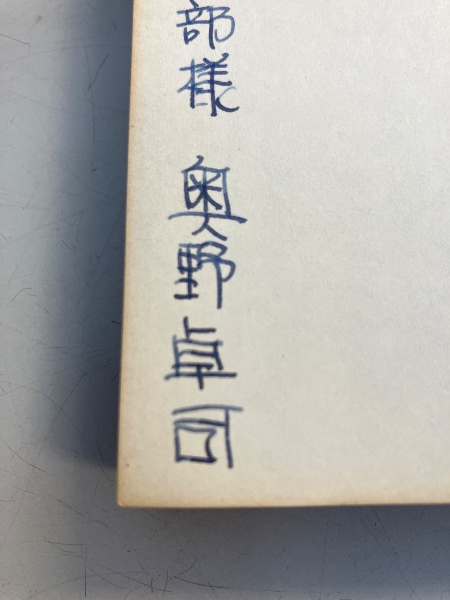 部様 奥野卓司